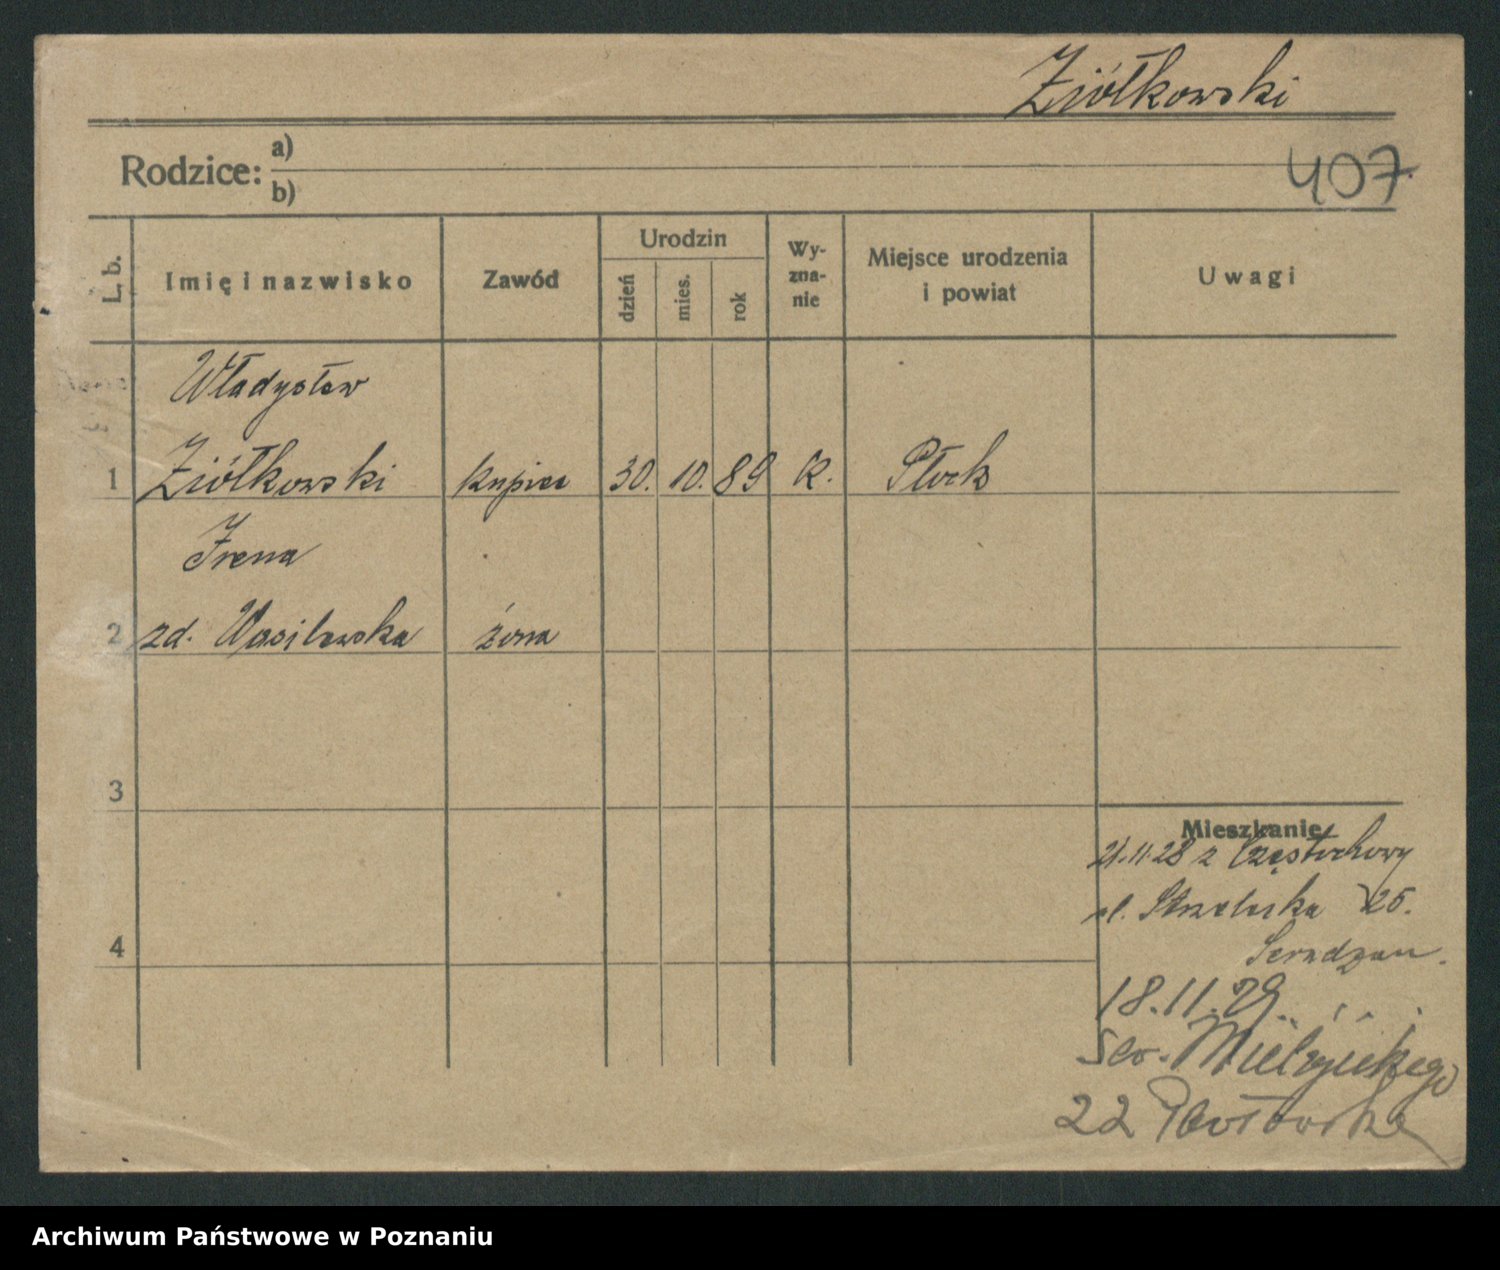 Ziółkowski
407.
Rodzice: a)
b)
L. b.
Imię i nazwisko
Zawód
Urodzin
dzień
mies.
rok
Wy-
zna-
nie
Miejsce urodzenia
i powiat
Uwagi
Władysław
1 Ziółkowski kupiec 30. 10. 89 K. Płock
Irena
2 zd. Wasilewska żona
3
4
Mieszkanie
21.11.28 z Częstochowy
ul. Strzelecka 25.
18.11.29.
Sew. Mielżyńskiego
22
Archiwum Państwowe w Poznaniu